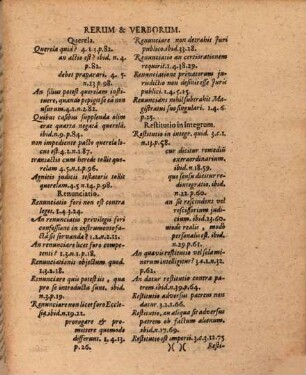 RERUM & VERBORUM.
Querela.
Querela quid? 4.1.1.p.81.
an actio est? ibid. n.4.
p.82.
debet præparari. 4. 5.
n.13.p.98.
An filius potest querelam insti-
tuere, quando pepigit se ea non
usurum 4.4.n.1.p.81.
Quibus casibus supplenda alim
eras quarta negatâ querelâ.
ibid.n.9.p.84.
non impediente pacto querela
est 4.2.n.1.p.87.
transactio cum herede tollit que-
relam 4.5.p.96.
Agnitio judicii testatoris tollit
querelam.4.5 n.14.p.98.
Renunciatio.
Renunciatio fori non est contra
leges, 1.4.3.24.
An renunciatio privilegii fori
confessione in instrumento fa-
ctâ sit servanda? 1.2.n.1.p.21.
An renunciare licet foro compe-
tenti? 1.3.p.18.
Renunciationis objectum quod.
1.3.n.2.p.18.
Renunciare quis potest iis, qua
pro se introducta sunt. ibid.
n.3.
Renunciare non licet foro Eccle-
siæ,ibid.n.19.p.22.
prorogare & pro-
mittere quomodo
differunt, 1.4.13.
p.26.
Renunciare non detrahit Juri
publico.ibid.33.28.
Renunciatio an certiorationem
requirit. 1.4.38.29.
Renunciatione privatorum ju-
risdictio non desiit esse Juris
publici, ibid.
Renunciando nihil subtrahit Ma-
gistratui jus singulari. 1.4. 6.
p.25.
Restitutio in Integrum.
Restitutio in integr. quid. 3.c.1
n.13.p.58.
cur dicitur remedii
extraordinarium,
ibid.n.18.p.59.
quo sensu dicitur re-
dintegratio, ibid.
n.22.p.60.
an se rescindens vel
rescissorium judi-
cium. ibid.23.60.
modo realis , modo
personalis est. ibid
n.29.p.61.
An quavis restitutio vel sola mi-
norum intelligitur? 3.1.n.32.
p.62.
An datur restitutio contra pa-
trem ibid.n.39.p.64.
Restitutio adversus patrem non
datur.3.2.1.86.
Restitutio, an aliqua sit adversus pa-
trem ob factum alienum,
ibid.n.17.69.
Restitutio est imperii. 3.c.3.12.75
)( )( Resti-